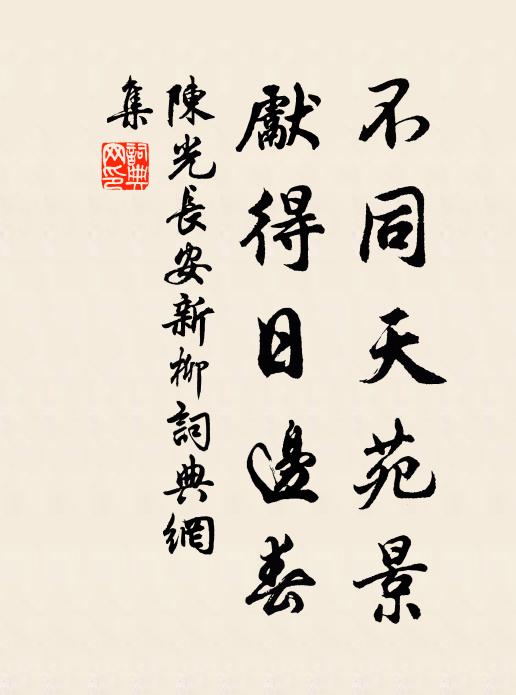 不同天苑景
獻得日邊春
陳光長安新柳詞典網
集
詞典
网印